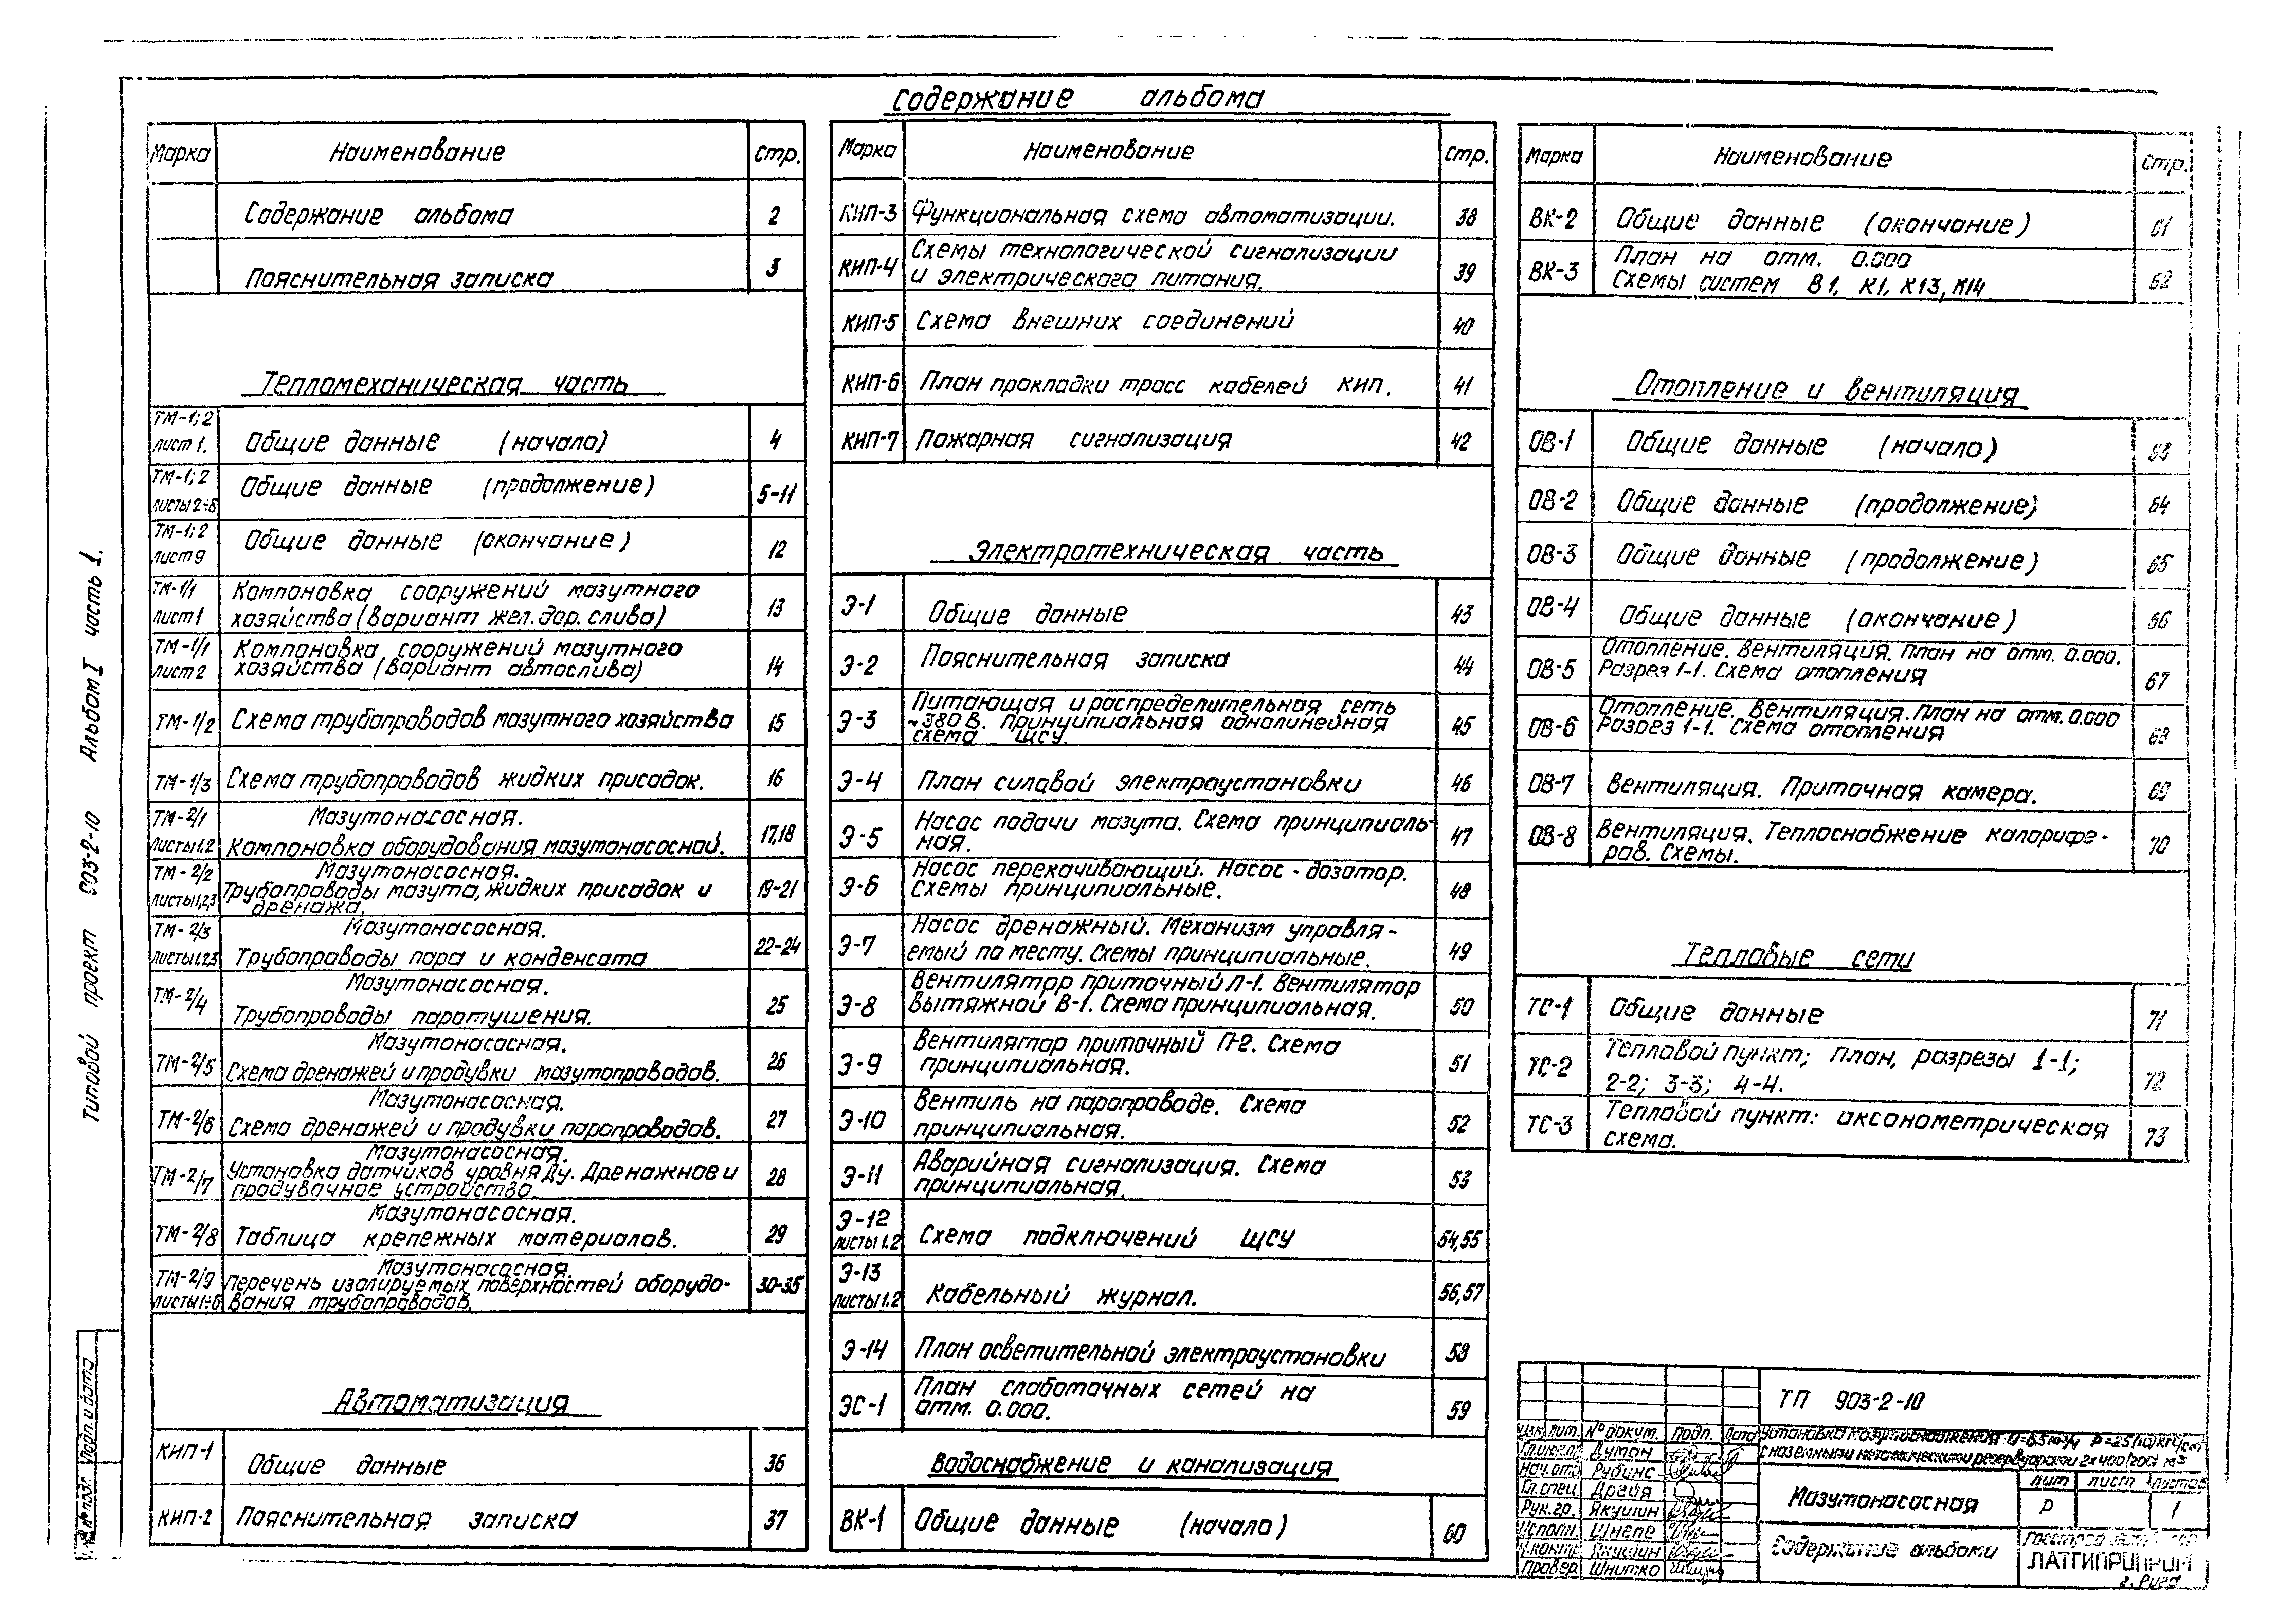 Содержание альбома
Марка Наименование Стр.
Содержание альбома 2
Пояснительная записка 3
Тепломеханическая часть
ТМ-1; 2
лист 1. Общие данные (начало) 4
ТМ-1; 2
листы 2÷8 Общие данные (продолжение) 5-11
ТМ-1; 2
лист 9 Общие данные (окончание) 12
ТМ-1/1 Компоновка сооружений мазутного
лист 1 хозяйства (вариант жел. дор. слива) 13
ТМ-1/1 Компоновка сооружений мазутного
лист 2 хозяйства (вариант автослива) 14
ТМ-1/2 Схема трубопроводов мазутного хозяйства 15
ТМ-1/3 Схема трубопроводов жидких присадок. 16
ТМ-2/1 Мазутонасосная.
листы 1.2 Компоновка оборудования мазутонасосной. 17,18
ТМ-2/2 Мазутонасосная.
листы 1,2,3 Трубопроводы мазута, жидких присадок и 19-21
дренажа.
ТМ-2/3 Мазутонасосная.
листы 1.2,3 Трубопроводы пара и конденсата 22-24
ТМ-2/4 Мазутонасосная.
Трубопроводы паротушения. 25
Мазутонасосная.
ТМ-2/5 Схема дренажей и продувки мазутопроводов. 26
Мазутонасосная.
ТМ-2/6 Схема дренажей и продувки паропроводов. 27
Мазутонасосная.
ТМ-2/7 Установка датчиков уровня Ду. Дренажное и 28
продувочное устройство.
Мазутонасосная.
ТМ-2/8 Таблица крепежных материалов. 29
Мазутонасосная.
ТМ-2/9 Перечень изолируемых поверхностей оборудо- 30-35
листы 1÷6 вания трубопроводов.
Автоматизация
КИП-1 Общие данные 36
КИП-2 Пояснительная записка 37
Марка Наименование Стр.
КИП-3 Функциональная схема автоматизации. 38
КИП-4 Схемы технологической сигнализации 39
и электрического питания.
КИП-5 Схема внешних соединений 40
КИП-6 План прокладки трасс кабелей КИП. 41
КИП-7 Пожарная сигнализация 42
Электротехническая часть
Э-1 Общие данные 43
Э-2 Пояснительная записка 44
Питающая и распределительная сеть
Э-3 ~380 В. Принципиальная однолинейная 45
схема ЩСУ.
Э-4 План силовой электроустановки 46
Э-5 Насос подачи мазута. Схема принципиаль- 47
ная.
Э-6 Насос перекачивающий. Насос-дозатор. 48
Схемы принципиальные.
Э-7 Насос дренажный. Механизм управля- 49
емый по месту. Схемы принципиальные.
Э-8 Вентилятор приточный П-1. Вентилятор 50
вытяжной В-1. Схема принципиальная.
Э-9 Вентилятор приточный П-2. Схема 51
принципиальная.
Э-10 Вентиль на паропроводе. Схема 52
принципиальная.
Э-11 Аварийная сигнализация. Схема 53
принципиальная.
Э-12
листы 1.2 Схема подключений ЩСУ 54,55
Э-13
листы 1.2 Кабельный журнал. 56,57
Э-14 План осветительной электроустановки 58
ЭС-1 План слаботочных сетей на 59
отм. 0.000.
Водоснабжение и канализация
ВК-1 Общие данные (начало) 60
Марка Наименование Стр.
ВК-2 Общие данные (окончание) 61
ВК-3 План на отм. 0.000 62
Схемы систем В1, К1, К13, К14
Отопление и вентиляция
ОВ-1 Общие данные (начало) 63
ОВ-2 Общие данные (продолжение) 64
ОВ-3 Общие данные (продолжение) 65
ОВ-4 Общие данные (окончание) 66
Отопление. Вентиляция. План на отм. 0.000.
ОВ-5 Разрез 1-1. Схема отопления 67
Отопление. Вентиляция. План на отм. 0.000
ОВ-6 Разрез 1-1. Схема отопления 68
ОВ-7 Вентиляция. Приточная камера. 69
ОВ-8 Вентиляция. Теплоснабжение калорифе- 70
ров. Схемы.
Тепловые сети
ТС-1 Общие данные 71
ТС-2 Тепловой пункт; план, разрезы 1-1; 72
2-2; 3-3; 4-4.
ТС-3 Тепловой пункт: аксонометрическая 73
схема.
Типовой проект 903-2-10 Альбом I часть 1.
Подп. и дата
№ подл.
ТП 903-2-10
Изм. лит. № докум. Подп. Дата
Думан
Нач. отд. Рубинс
Гл. спец. Дрейя
Рук. гр. Якушин
Исполн. Шнепе
Н. контр. Якушин
Провер. Шнитко
Установка мазутоснабжения Q=6,5 м³/ч Р=25(10) кгс/см²
с наземными металлическими резервуарами 2×400/200 м³
Мазутонасосная
лит лист листов
Р 1
Содержание альбома
Госстрой
ЛАТГИПРОПРОМ
г. Рига